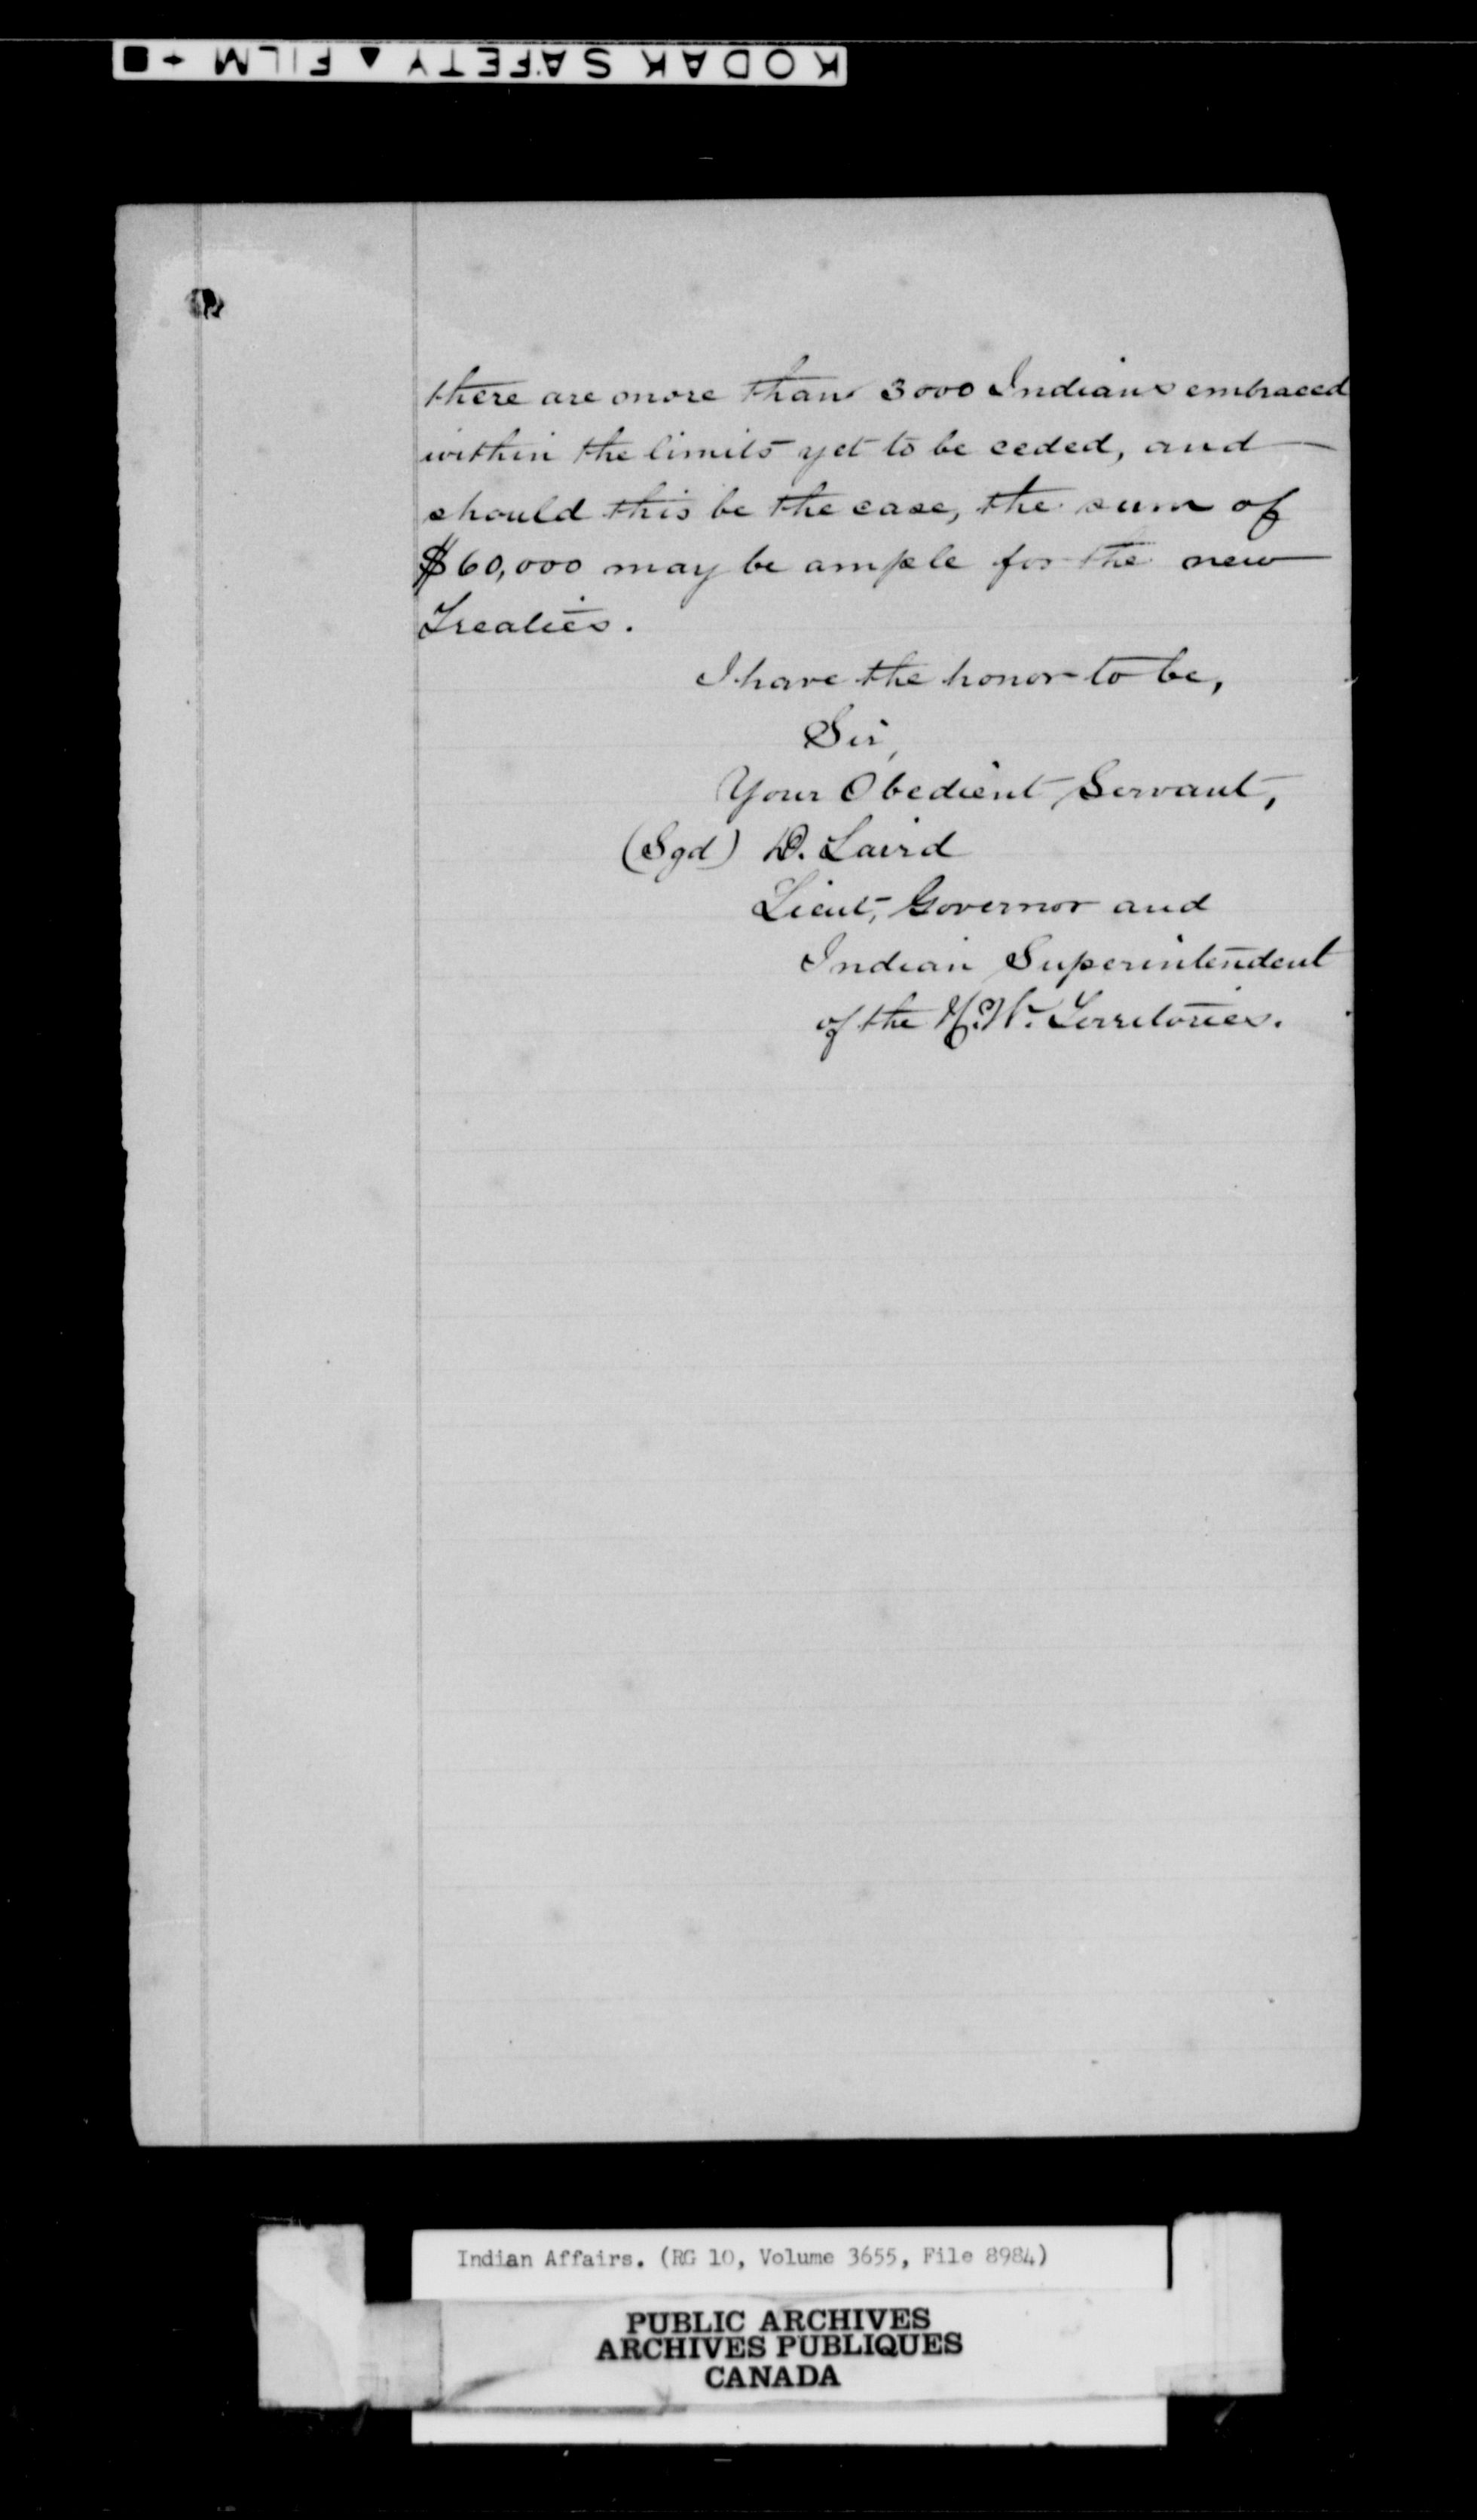 KODAK SAFETY ▲ FILM
there are more than 3000 Indians embraced
within the limits yet to be ceded, and
should this be the case, the sum of
$60,000 may be ample for the new
Treaties.
I have the honor to be,
Sir,
Your Obedient Servant,
(Sgd) D. Laird
Lieut, Governor and
Indian Superintendent
of the N.W. Territories.
Indian Affairs. (RG 10, Volume 3655, File 8984)
PUBLIC ARCHIVES
ARCHIVES PUBLIQUES
CANADA